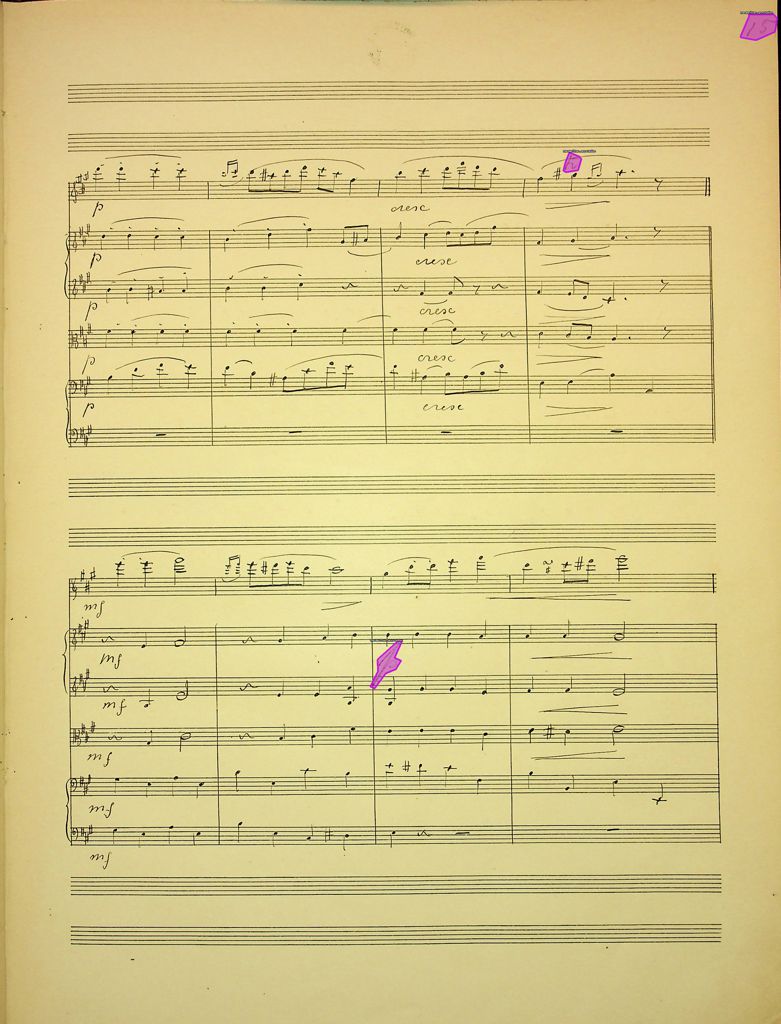 15
p
cresc
p
cresc
p
cresc
p
cresc
p
cresc
mf
mf
mf
mf
mf
mf